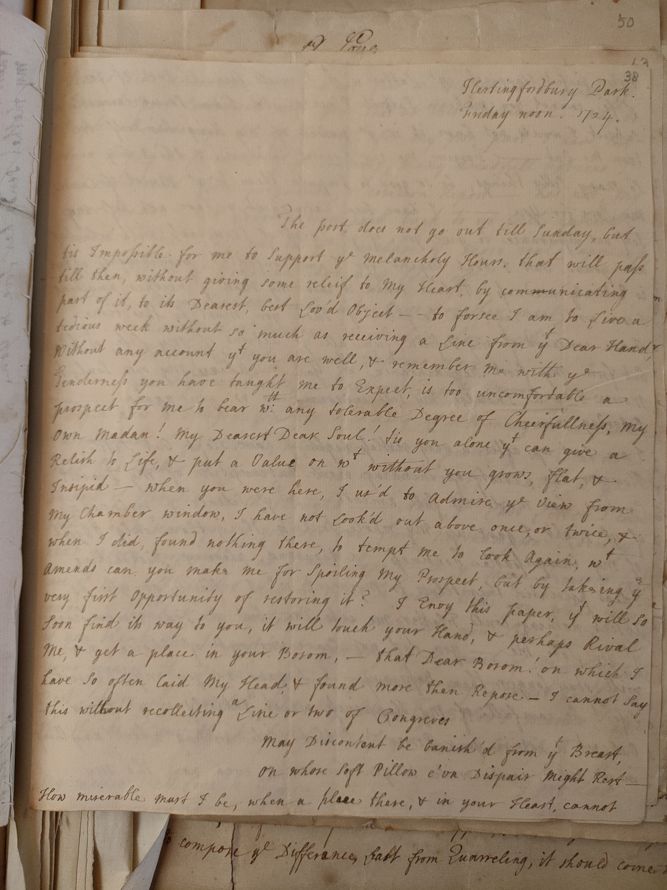 50
38
Hertingfordbury Park.
Friday noon. 1724.
The post does not go out till Sunday, but
tis Impossible for me to Support ye melancholy Hours, that will pass
till then, without giving some releif to My Heart by communicating
part of it, to its Dearest, best Lov'd Object — to forsee I am to Live a
tedious week without so much as receiving a Line from yr Dear Hand &
Without any account yt you are well, & remember me with ye
Tenderness you have taught me to Expect, is too uncomfortable a
prospect for me to bear wth any tolerable Degree of Cheerfullness, My
Own Madan! My Dearest Dear Soul! tis you alone yt can give a
Relish to Life, & put a Value on wt without you grows, flat, &
Insipid — when you were here, I us'd to Admire ye View from
My Chamber window, I have not Look'd out above once, or twice, &
when I did, found nothing there, to tempt me to Look Again, wt
Amends can you make me for Spoiling My Prospect, but by takeing ye
very first Opportunity of restoring it? I Envy this paper, yt will So
Soon find its way to you, it will touch your Hand, & perhaps Rival
Me, & get a place in your Bosom, — that Dear Bosom! on which I
have So often Laid My Head, & found more then Repose — I cannot Say
this without recollecting a Line or two of Congreves
May Discontent be banish'd from yt Breast,
On whose Soft Pillow e'vn Dispair Might Rest —
How miserable must I be, when a place there, & in your Heart, cannot
compose ye Differance, East from Quarreling, it should come